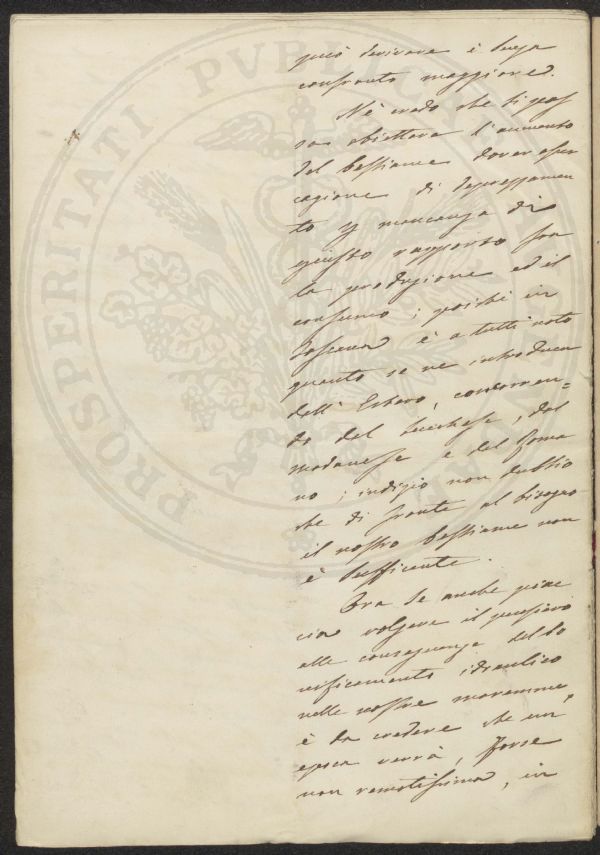 PROSPERITATI PVBLICAE
può derivare è senza
confronto maggiore.
Nè credo che si pos
sa obiettare l'aumento
del bestiame dover esser
cagione di deprezzamen
to p mancanza di
giusto rapporto fra
la produzione ed il
consumo; poichè in
Toscana è a tutti noto
quanto se ne introduca
dall' Estero, concorren=
do dal Lucchese, dal
modanese e dal Roma
no; indizio non dubbio
che di fronte al bisogno
il nostro bestiame non
è sufficente.
Ora se anche piac
cia volgere il pensiero
alle conseguenze del bo
nificamento idraulico
nelle nostre maremme,
è da credere che un'
epoca verrà, forse
non remotissima, in